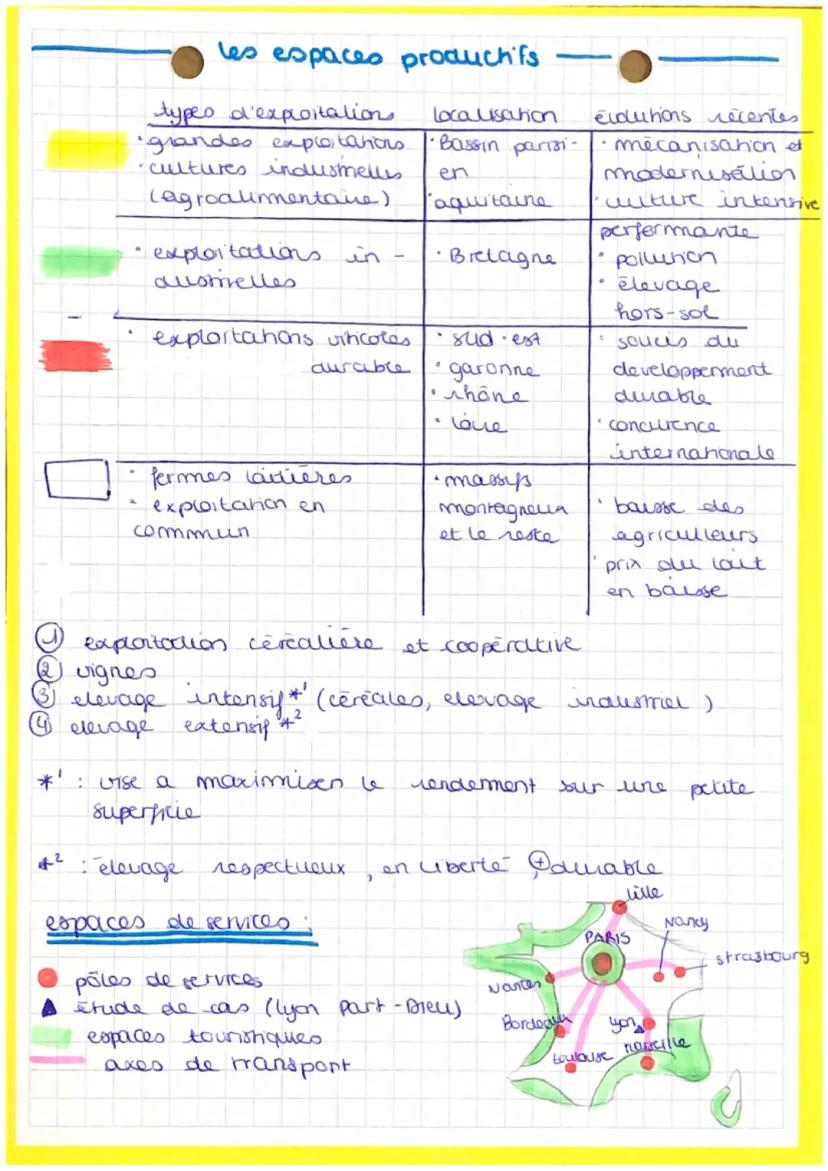 les espaces productifs
types d'exploitations localisation évolutions récentes
• grandes exploitations • Bassin parisi- • mécanisation et
• cultures industrielles en modernisation
(agroalimentaire) • aquitaine • culture intensive
performante
• exploitations in- • Bretagne • pollution
dustrielles • élevage
hors-sol
• exploitations viticoles • sud-est • soucis du
durable • garonne developpement
• rhône durable
• loire • concurence
internationale
• fermes laitières • massifs
• exploitation en montagneux • baisse des
commun et le reste agriculteurs
• prix du lait
en baisse
① exploitation céréalière et coopérative
② vignes
③ elevage intensif *1 (céréales, elevage industriel)
④ elevage extensif *2
*1 : vise a maximiser le rendement sur une petite
superficie
*2 : élevage respectueux, en liberté ⊕ durable
espaces de services :
pôles de services
étude de cas (lyon part-Dieu)
espaces touristiques
axes de transport
Lille
Nancy
PARIS
strasbourg
Nantes
Bordeaux
lyon
marseille
toulouse